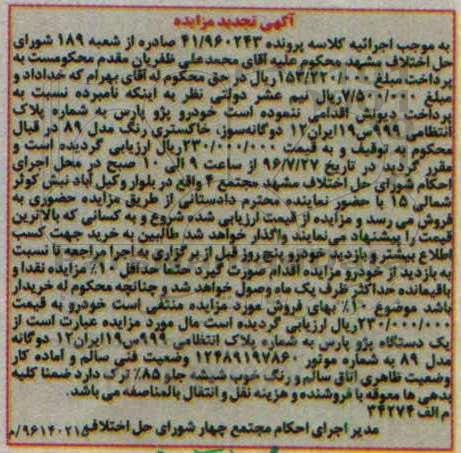 آگهی تجدید مزایده
به موجب اجرائیه کلاسه پرونده ۴۱/۹۶۰۲۴۳ صادره از شعبه ۱۸۹ شورای
حل اختلاف مشهد محکوم علیه آقای محمدعلی ظفریان مقدم محکومست به
پرداخت مبلغ ۱۵۳/۲۲۰/۰۰۰ ریال در حق محکوم له آقای بهرام که خداداد و
مبلغ ۷/۵۰۰/۰۰۰ ریال نیم عشر دولتی نظر به اینکه نامبرده نسبت به
پرداخت دیونش اقدامی ننموده است خودرو پژو پارس به شماره پلاک
انتظامی ۹۹۹س۱۹ایران۱۲ دوگانه‌سوز، خاکستری رنگ مدل ۸۹ در قبال
محکوم به توقیف و به قیمت ۲۳۰/۰۰۰/۰۰۰ریال ارزیابی گردیده است و
مقرر گردید در تاریخ ۹۶/۷/۲۷ از ساعت ۹ الی ۱۰ صبح در محل اجرای
احکام شورای حل اختلاف مشهد مجتمع ۴ واقع در بلوار وکیل آباد نبش کوثر
شمالی ۱۵ با حضور نماینده محترم دادستانی از طریق مزایده حضوری به
فروش می رسد و مزایده از قیمت ارزیابی شده شروع و به کسانی که بالاترین
قیمت را پیشنهاد می نمایند واگذار خواهد شد طالبین به خرید جهت کسب
اطلاع بیشتر و بازدید خودرو پنج روز قبل از برگزاری به اجرا مراجعه تا نسبت
به بازدید از خودرو مزایده اقدام صورت گیرد حتما حداقل ۱۰٪ مزایده نقدا و
باقیمانده حداکثر ظرف یک ماه وصول خواهد شد و چنانچه محکوم له خریدار
باشد موضوع ۱۰٪ بهای فروش مورد مزایده منتفی است خودرو به قیمت
۲۳۰/۰۰۰/۰۰۰ریال ارزیابی گردیده است مال مورد مزایده عبارت است از
یک دستگاه پژو پارس به شماره پلاک انتظامی ۹۹۹س۱۹ایران۱۲ دوگانه
مدل ۸۹ به شماره موتور ۱۲۴۸۹۱۹۷۸۶۰ وضعیت فنی سالم و آماده کار
وضعیت ظاهری اتاق سالم و رنگ خوب شیشه جلو ۸۵٪ ترک دارد ضمنا کلیه
بدهی ها معوقه با فروشنده و هزینه نقل و انتقال بالمناصفه می باشد.
م الف ۳۴۲۷۴
مدیر اجرای احکام مجتمع چهار شورای حل اختلاف ۹۶۱۴۰۲۱۵/م